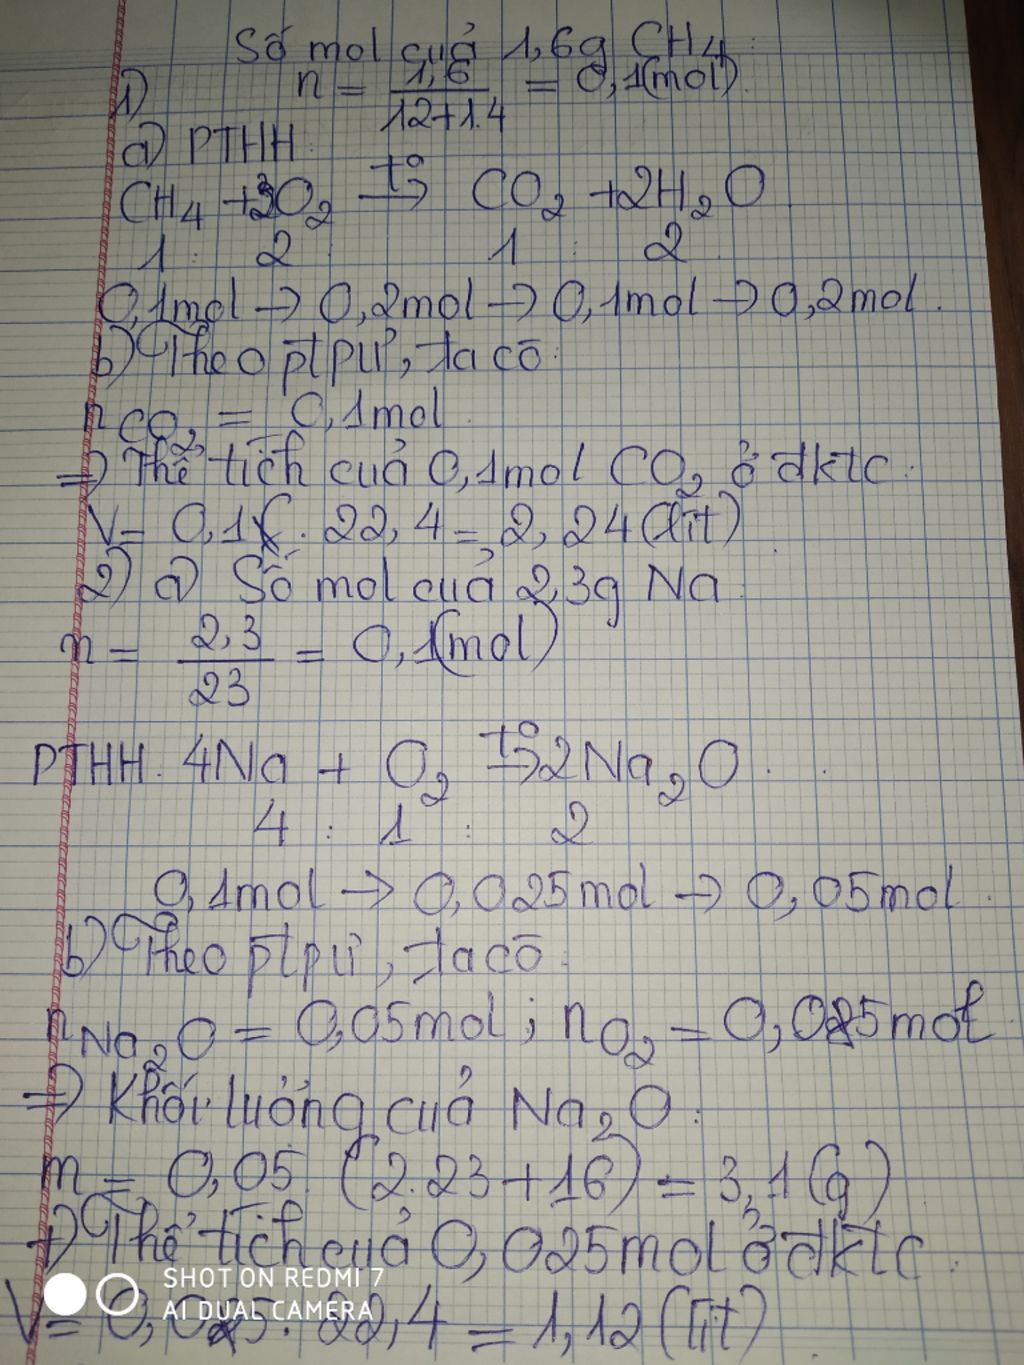 Số mol của 1,6g CH4:
1) n = 1,6 / 12+1.4 = 0,1(mol)
a) PTHH:
CH4 + 2O2 t° → CO2 + 2H2O
1 : 2 : 1 : 2
0,1mol → 0,2mol → 0,1mol → 0,2mol.
b) Theo ptpư, ta có:
nCO2 = 0,1mol
=> Thể tích của 0,1mol CO2 ở đktc:
V = 0,1 . 22,4 = 2,24 (lít)
2) a) Số mol của 2,3g Na:
n = 2,3 / 23 = 0,1(mol)
PTHH: 4Na + O2 t° → 2Na2O
4 : 1 : 2
0,1mol → 0,025mol → 0,05mol.
b) Theo ptpư, ta có:
nNa2O = 0,05mol ; nO2 = 0,025mol
=> Khối lượng của Na2O:
m = 0,05. (2.23+16) = 3,1 (g)
+) Thể tích của 0,025mol ở đktc:
V = 0,025. 22,4 = 1,12 (lít)
SHOT ON REDMI 7
AI DUAL CAMERA